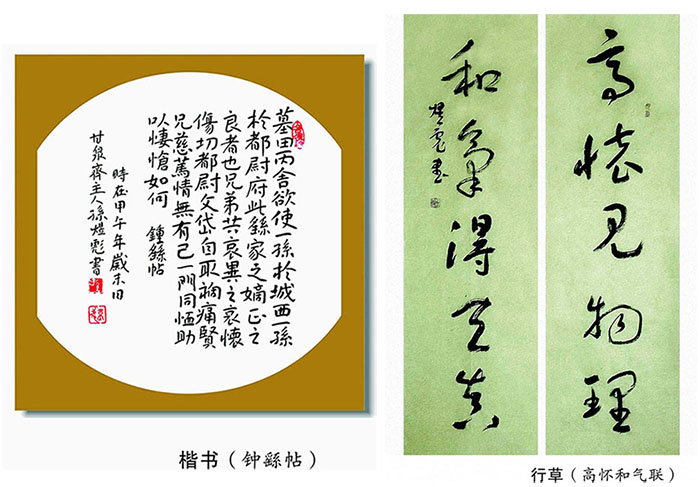 墓田丙舍欲使一孫於城西一孫
於都尉府此繇家之嫡正之
良者也兄弟共哀異之哀懷
傷切都尉文岱自取禍痛賢
兄慈篤情無有已一門同恤助
以悽愴如何 鍾繇帖
時在甲午年歲末日
甘泉齋主人孫煜彪書
楷书（钟繇帖）
高懷見物理
和氣得天真
煜彪書
行草（高怀和气联）